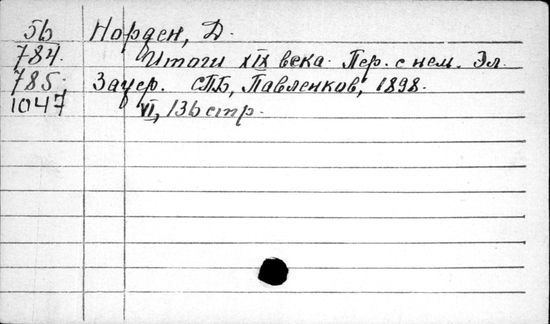 56 Норден, Д.
784. Итоги XIX века. Пер. с нем. Эл.
785. Зауер. СПБ, Павленков, 1898.
1047 VI, 136 стр.